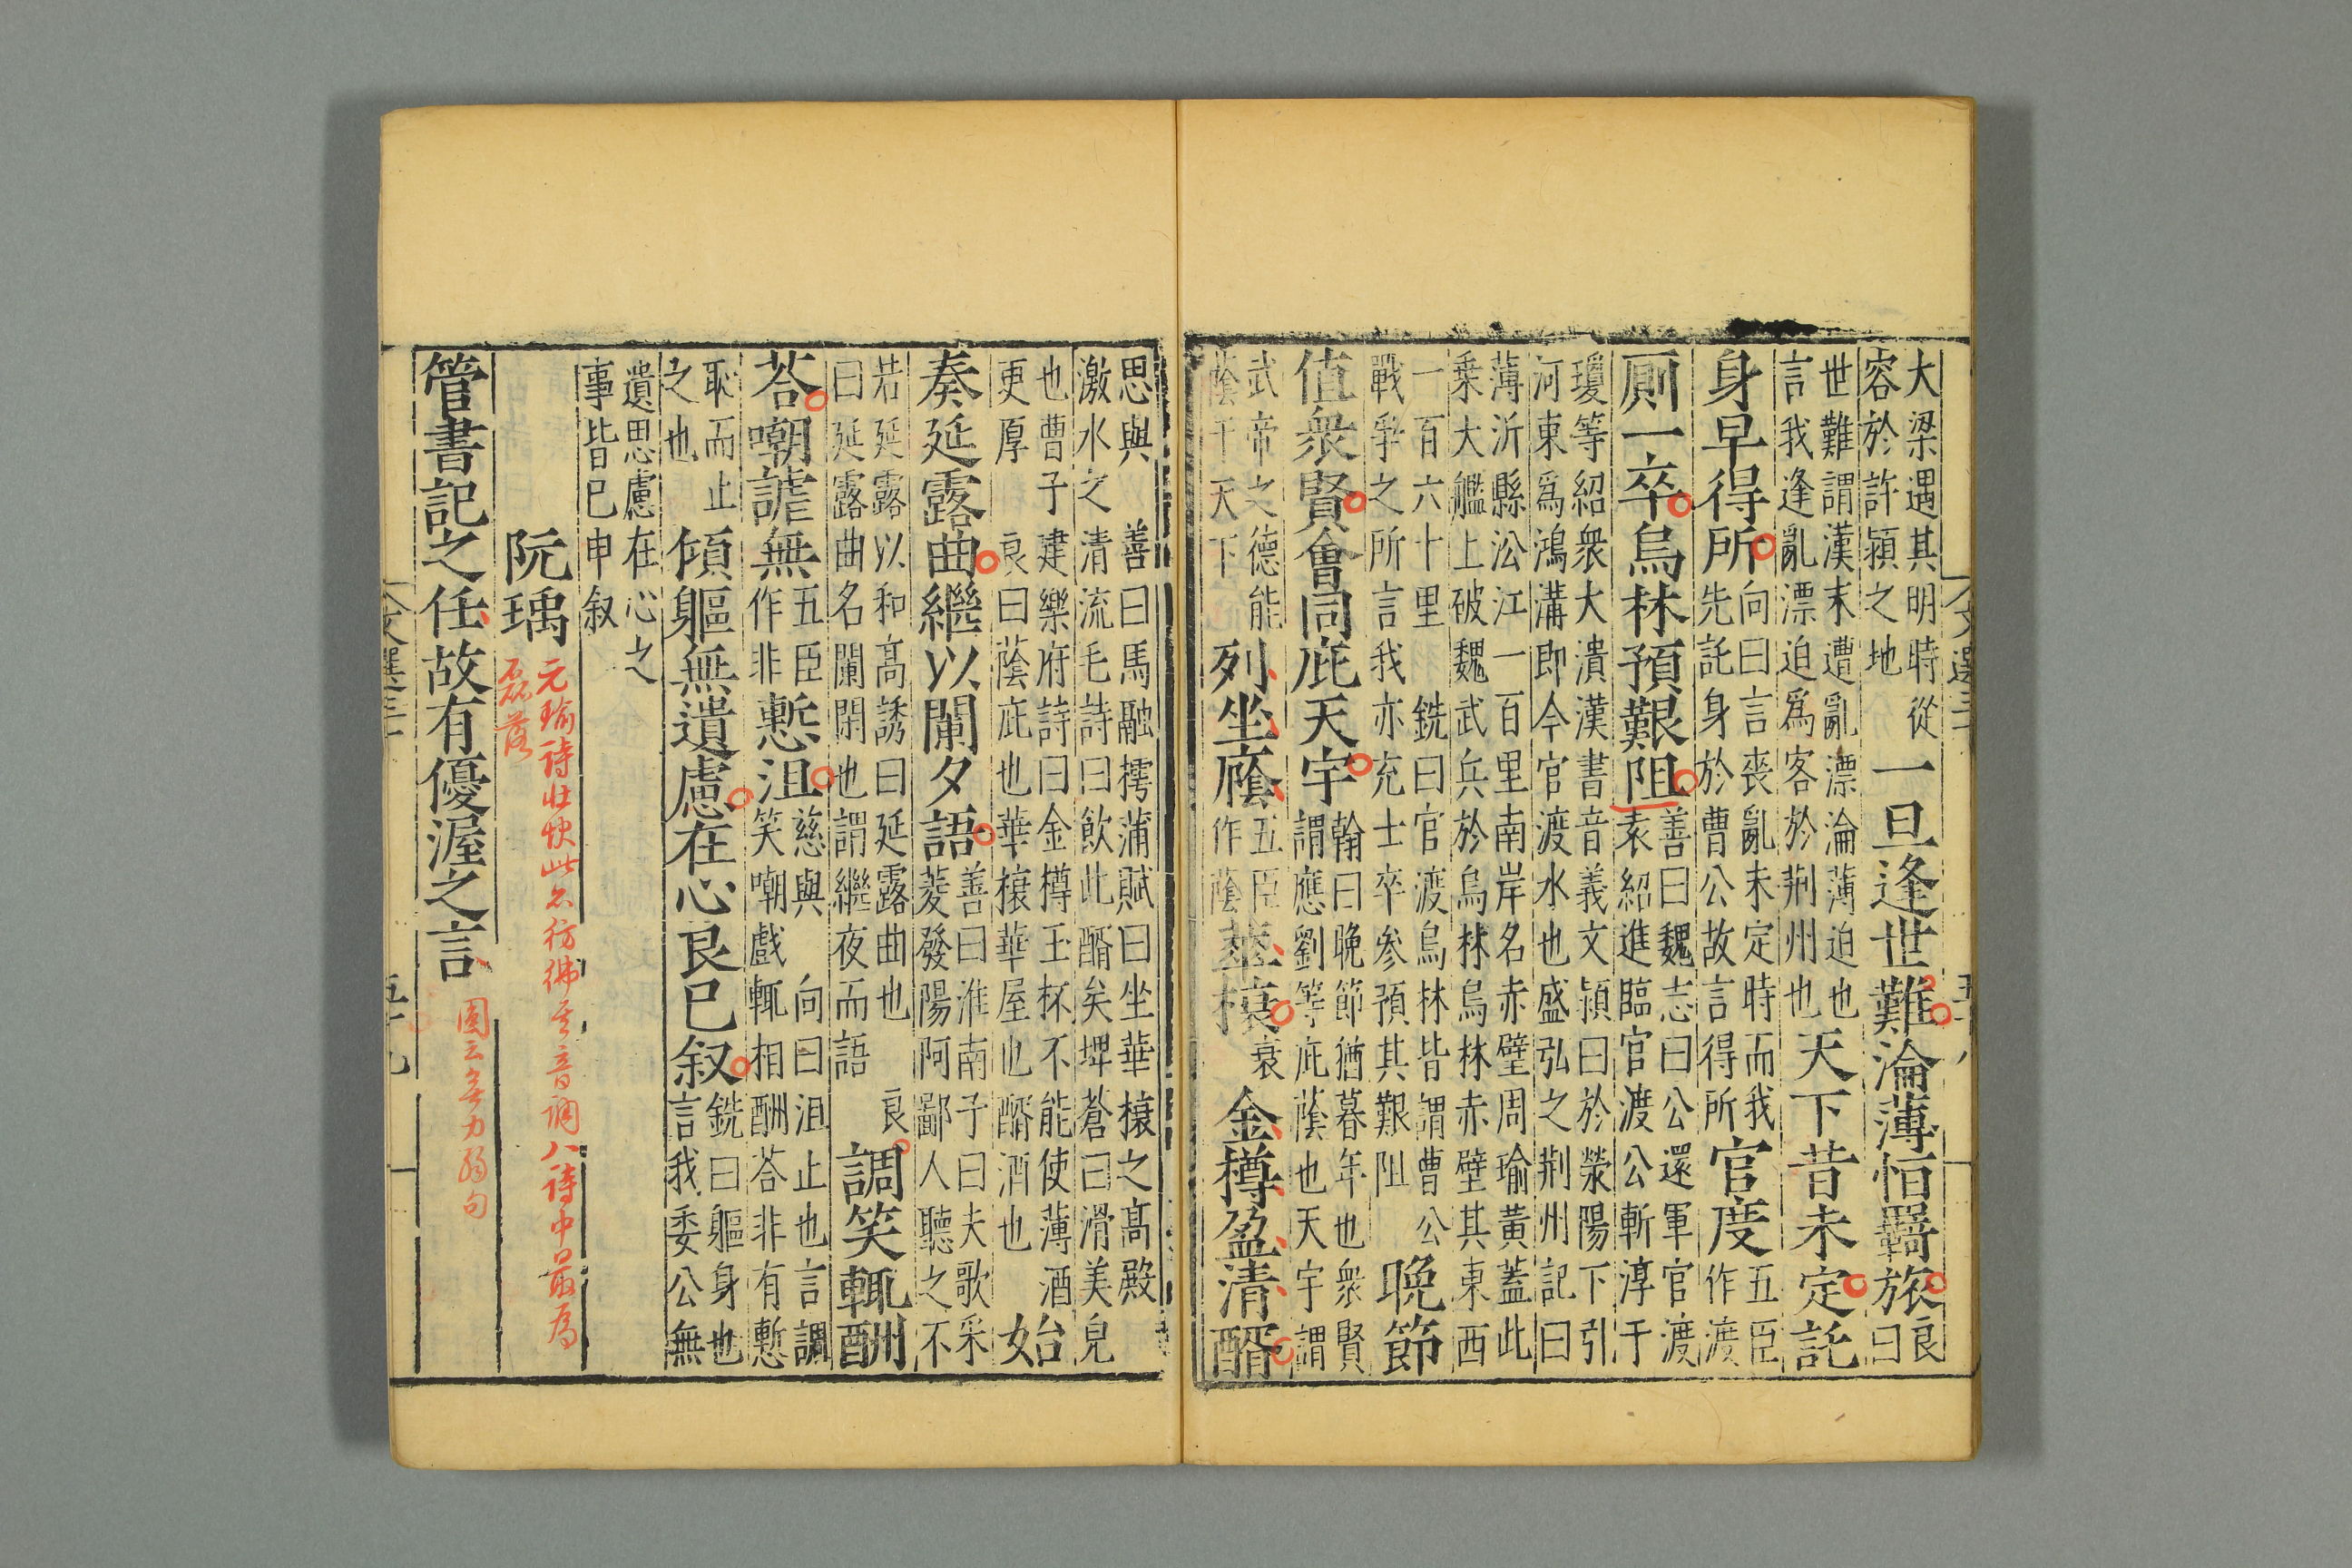 大梁遇其明時從
容於許潁之地
一旦逢世難淪薄恒羇旅
良
曰
世難謂漢末遭亂漂淪薄迫也
言我逢亂漂迫爲客於荆州也
天下昔未定託
身早得所
向曰言喪亂未定時而我
先託身於曹公故言得所
官度
五臣
作渡
厠一卒烏林預艱阻
善曰魏志曰公還軍官渡
袁紹進臨官渡公斬淳于
瓊等紹衆大潰漢書音義文潁曰於滎陽下引
河東爲鴻溝即今官渡水也盛弘之荆州記曰
薄沂縣㳂江一百里南岸名赤壁周瑜黃蓋此
乗大艦上破魏武兵於烏林烏林赤壁其東西
一百六十里
銑曰官渡烏林皆謂曹公
戰爭之所言我亦充士卒參預其艱阻
晚節
值衆賢會同庇天宇
翰曰晚節猶暮年也衆賢
謂應劉等庇䕃也天宇謂
武帝之德能
䕃于天下
列坐廕
五臣
作蔭
華榱
衰
金樽盈清醑
思與
善曰馬融摴蒲賦曰坐華榱之高殿
激水之清流毛詩曰飮此醑矣埤蒼曰滑美皃
也曹子建樂府詩曰金樽玉杯不能使薄酒
更厚
良曰蔭庇也華榱華屋也醑酒也
始
奏延露曲繼以闌夕語
善曰淮南子曰夫歌采
菱發陽阿鄙人聽之不
若延露以和高誘曰延露曲也
良
曰延露曲名闌閑也謂繼夜而語
調笑輒酬
荅嘲謔無
五臣
作非
慙沮
慈與
向曰沮止也言調
笑嘲戲輒相酬荅非有慙
恥而止
之也
傾軀無遺慮在心良已叙
銑曰軀身也
言我委公無
遺思慮在心之
事皆已申叙
阮瑀
元瑜詩壯快此亦彷彿其音調八詩中最爲
磊落
管書記之任故有優渥之言
圈云無力弱句